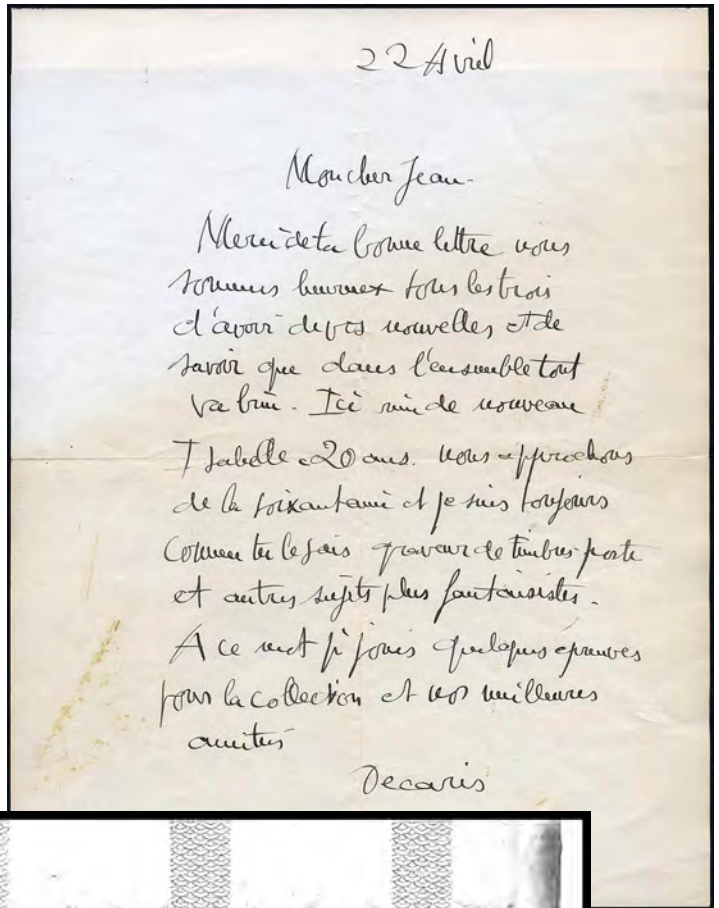 22 Avril
Mon cher Jean.
Merci de ta bonne lettre nous
sommes heureux tous les trois
d'avoir de vos nouvelles et de
savoir que dans l'ensemble tout
va bien. Ici rien de nouveau
Isabelle a 20 ans. nous approchons
de la soixantaine et je suis toujours
comme tu le sais graveur de timbres poste
et autres sujets plus fantaisistes.
A ce mot je joins quelques épreuves
pour la collection et nos meilleures
amitiés
Decaris